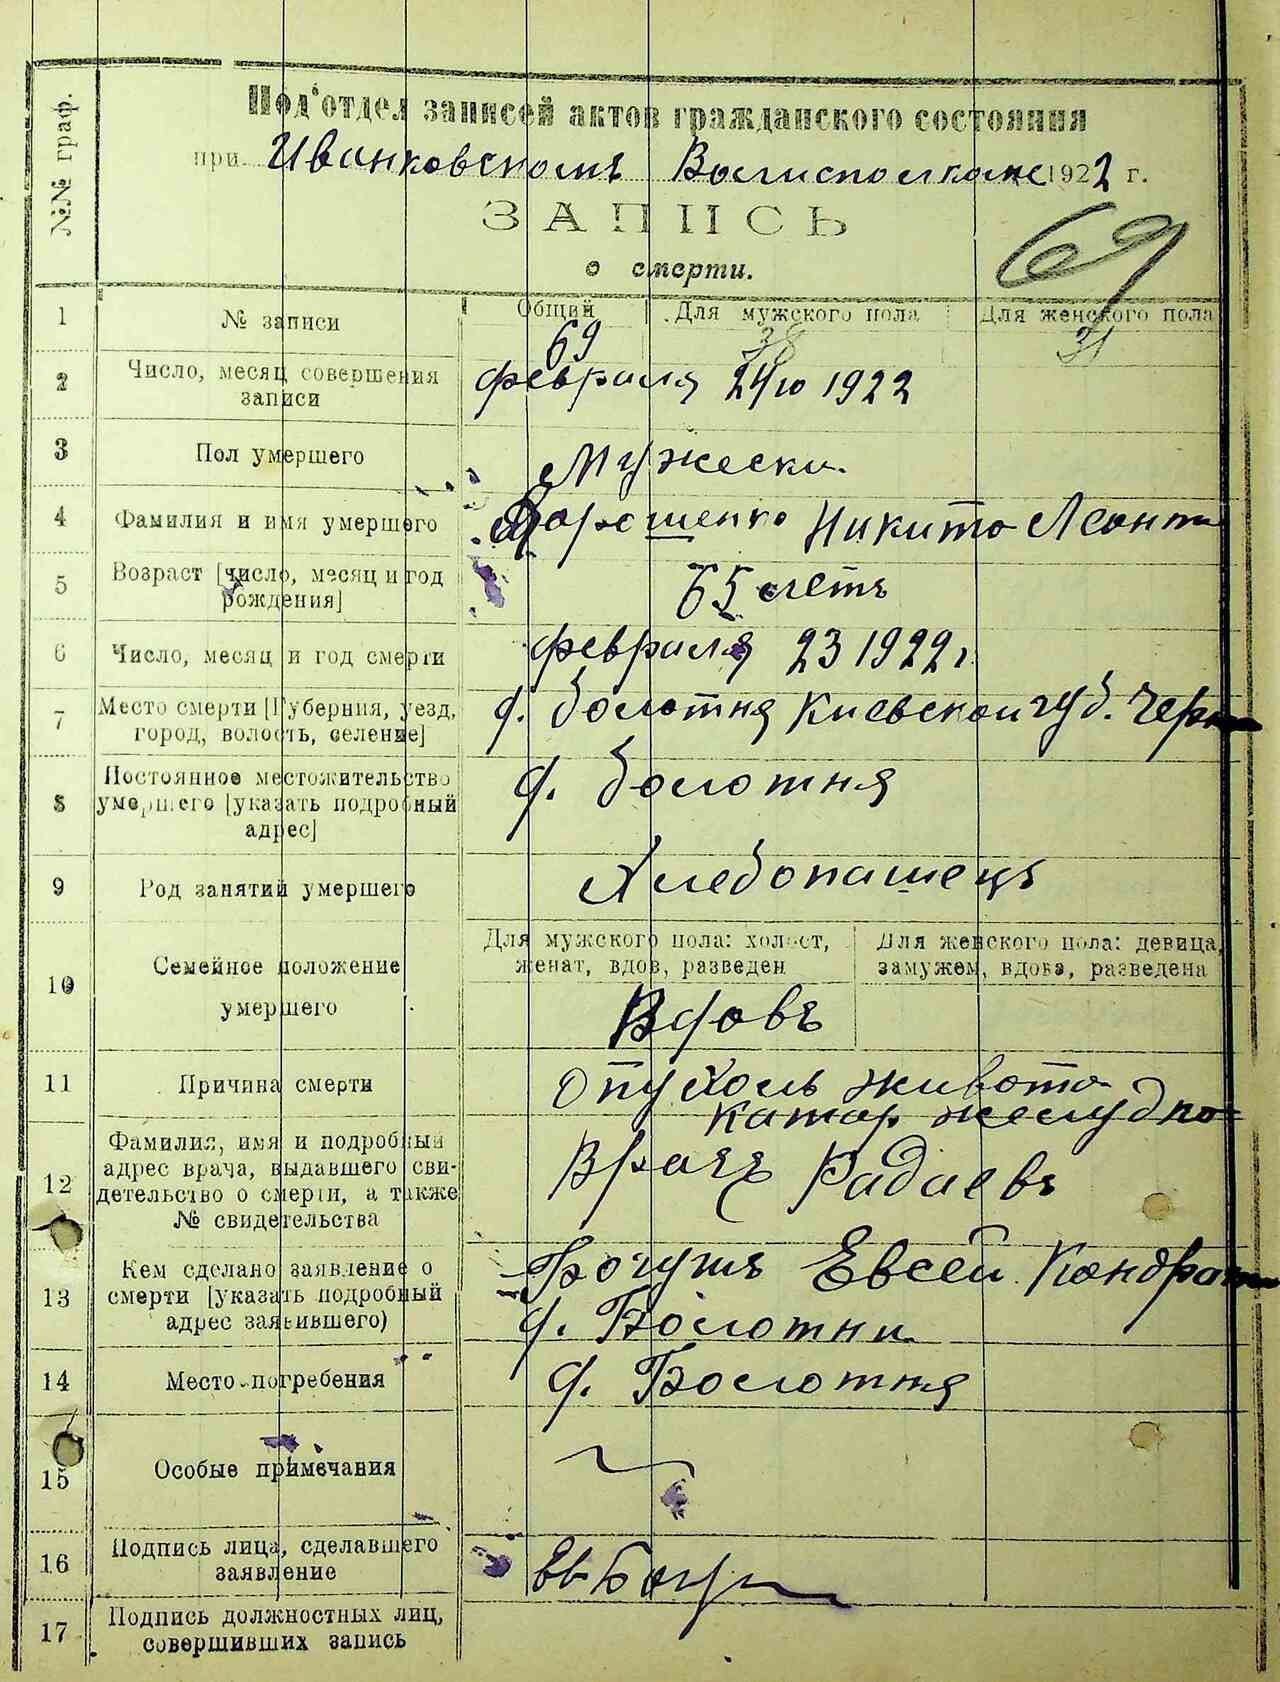 №№ граф.
Под'отдел записей актов гражданского состояния
при Иванковскомъ Волисполкоме 1922 г.
ЗАПИСЬ
о смерти.
69
1 № записи Общий Для мужского пола Для женского пола
69 38 31
2 Число, месяц совершения записи
февраля 24го 1922
3 Пол умершего Мужески
4 Фамилия и имя умершего Дорошенко Никито Леонт
5 Возраст [число, месяц и год рождения]
65 летъ
6 Число, месяц и год смерти февраля 23 1922 г
7 Место смерти [Губерния, уезд, город, волость, селение]
д. болотня Киевской губ. Черн
8 Постоянное местожительство умершего [указать подробный адрес]
д. болотня
9 Род занятий умершего Хлебопашецъ
10 Семейное положение умершего
Для мужского пола: холост, женат, вдов, разведен
Для женского пола: девица, замужем, вдова, разведена
Вдовъ
11 Причина смерти Опухоль живота
катар желудко
12 Фамилия, имя и подробный адрес врача, выдавшего свидетельство о смерти, а также № свидетельства
Врачъ Радаевъ
13 Кем сделано заявление о смерти [указать подробный адрес заявившего)
Богушъ Евсей Кондрат
д. Болотни
14 Место погребения д. Болотня
15 Особые примечания
16 Подпись лица, сделавшего заявление
Ев Богу
17 Подпись должностных лиц, совершивших запись